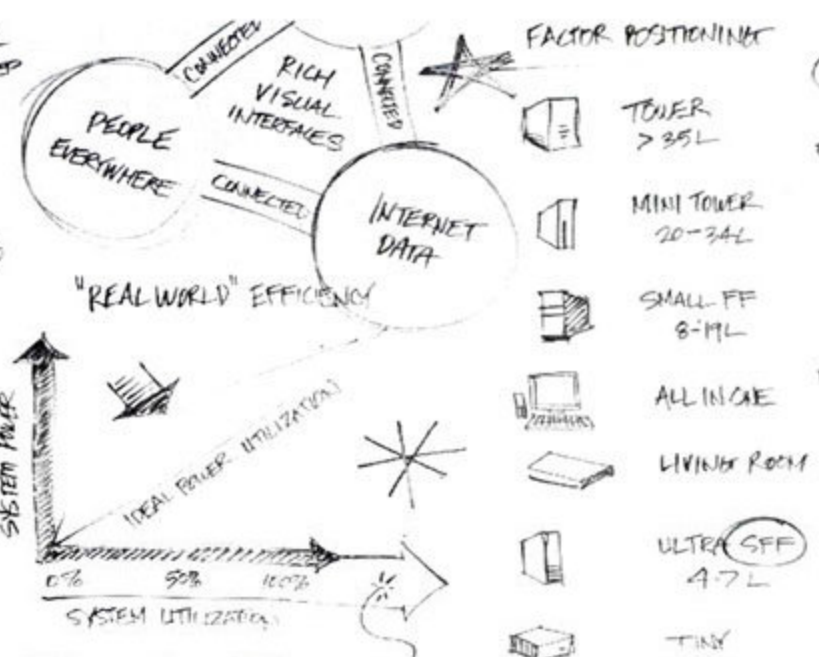 CONNECTED
RICH
VISUAL
INTERFACES
CONNECTED
PEOPLE
EVERYWHERE
CONNECTED
INTERNET
DATA
"REAL WORLD" EFFICIENCY
SYSTEM POWER
IDEAL POWER UTILIZATION
0% 50% 100%
SYSTEM UTILIZATION
FACTOR POSITIONING
TOWER
> 35L
MINI TOWER
20-34L
SMALL FF
8-19L
ALL IN ONE
LIVING ROOM
ULTRA SFF
4-7L
TINY